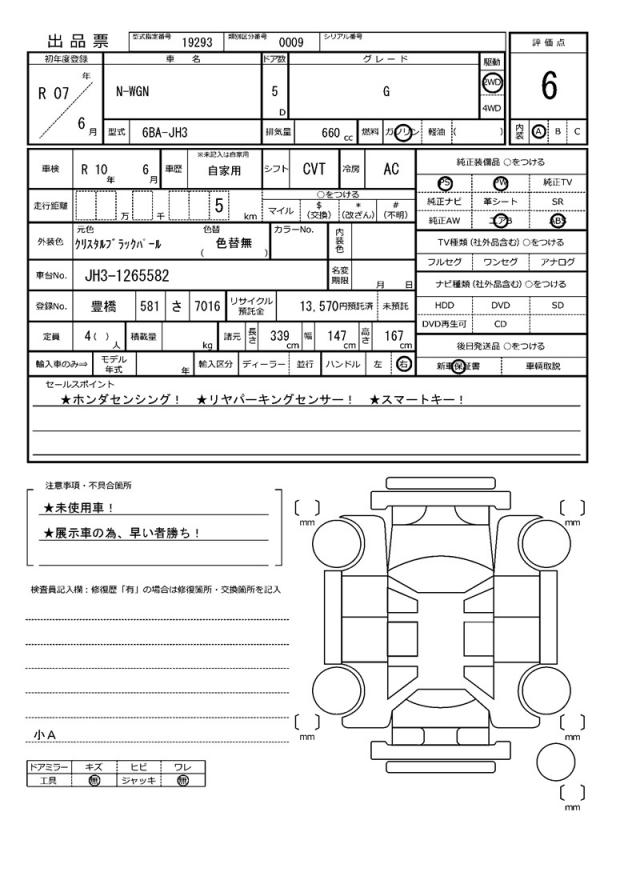 出品票 型式指定番号 19293 類別区分番号 0009 シリアル番号
初年度登録 車名 ドア数 グレード 駆動 評価点
R 07 年 6 月 N-WGN 5 D G 2WD 4WD 6
型式 6BA-JH3 排気量 660 cc 燃料 ガソリン 軽油 ( ) 内装 A B C
車検 R 10 年 6 月 車歴 ※未記入は自家用 自家用 シフト CVT 冷房 AC 純正装備品 ○をつける
PS PW 純正TV
走行距離 万 千 5 km ○をつける
マイル $(交換) *(改ざん) #(不明)
純正ナビ 革シート SR
純正AW エアB ABS
外装色 元色 クリスタルブラックパール 色替 ( 色替無 ) カラーNo. 内装色
TV種類(社外品含む)○をつける
フルセグ ワンセグ アナログ
車台No. JH3-1265582 名変期限 月 日
ナビ種類(社外品含む)○をつける
登録No. 豊橋 581 さ 7016 リサイクル預託金 13,570円預託済 未預託
HDD DVD SD
DVD再生可 CD
定員 4( )人 積載量 kg 諸元 長さ 339 cm 幅 147 cm 高さ 167 cm
後日発送品 ○をつける
輸入車のみ⇒ モデル年式 年 輸入区分 ディーラー 並行 ハンドル 左 右
新車保証書 車輌取説
セールスポイント
★ホンダセンシング! ★リヤパーキングセンサー! ★スマートキー!
注意事項・不具合箇所
★未使用車!
★展示車の為、早い者勝ち!
検査員記入欄:修復歴「有」の場合は修復箇所・交換箇所を記入
小A
ドアミラー キズ ヒビ ワレ
工具 無 ジャッキ 無
[ ] mm
[ ] mm
[ ] mm
[ ] mm
[ ] mm